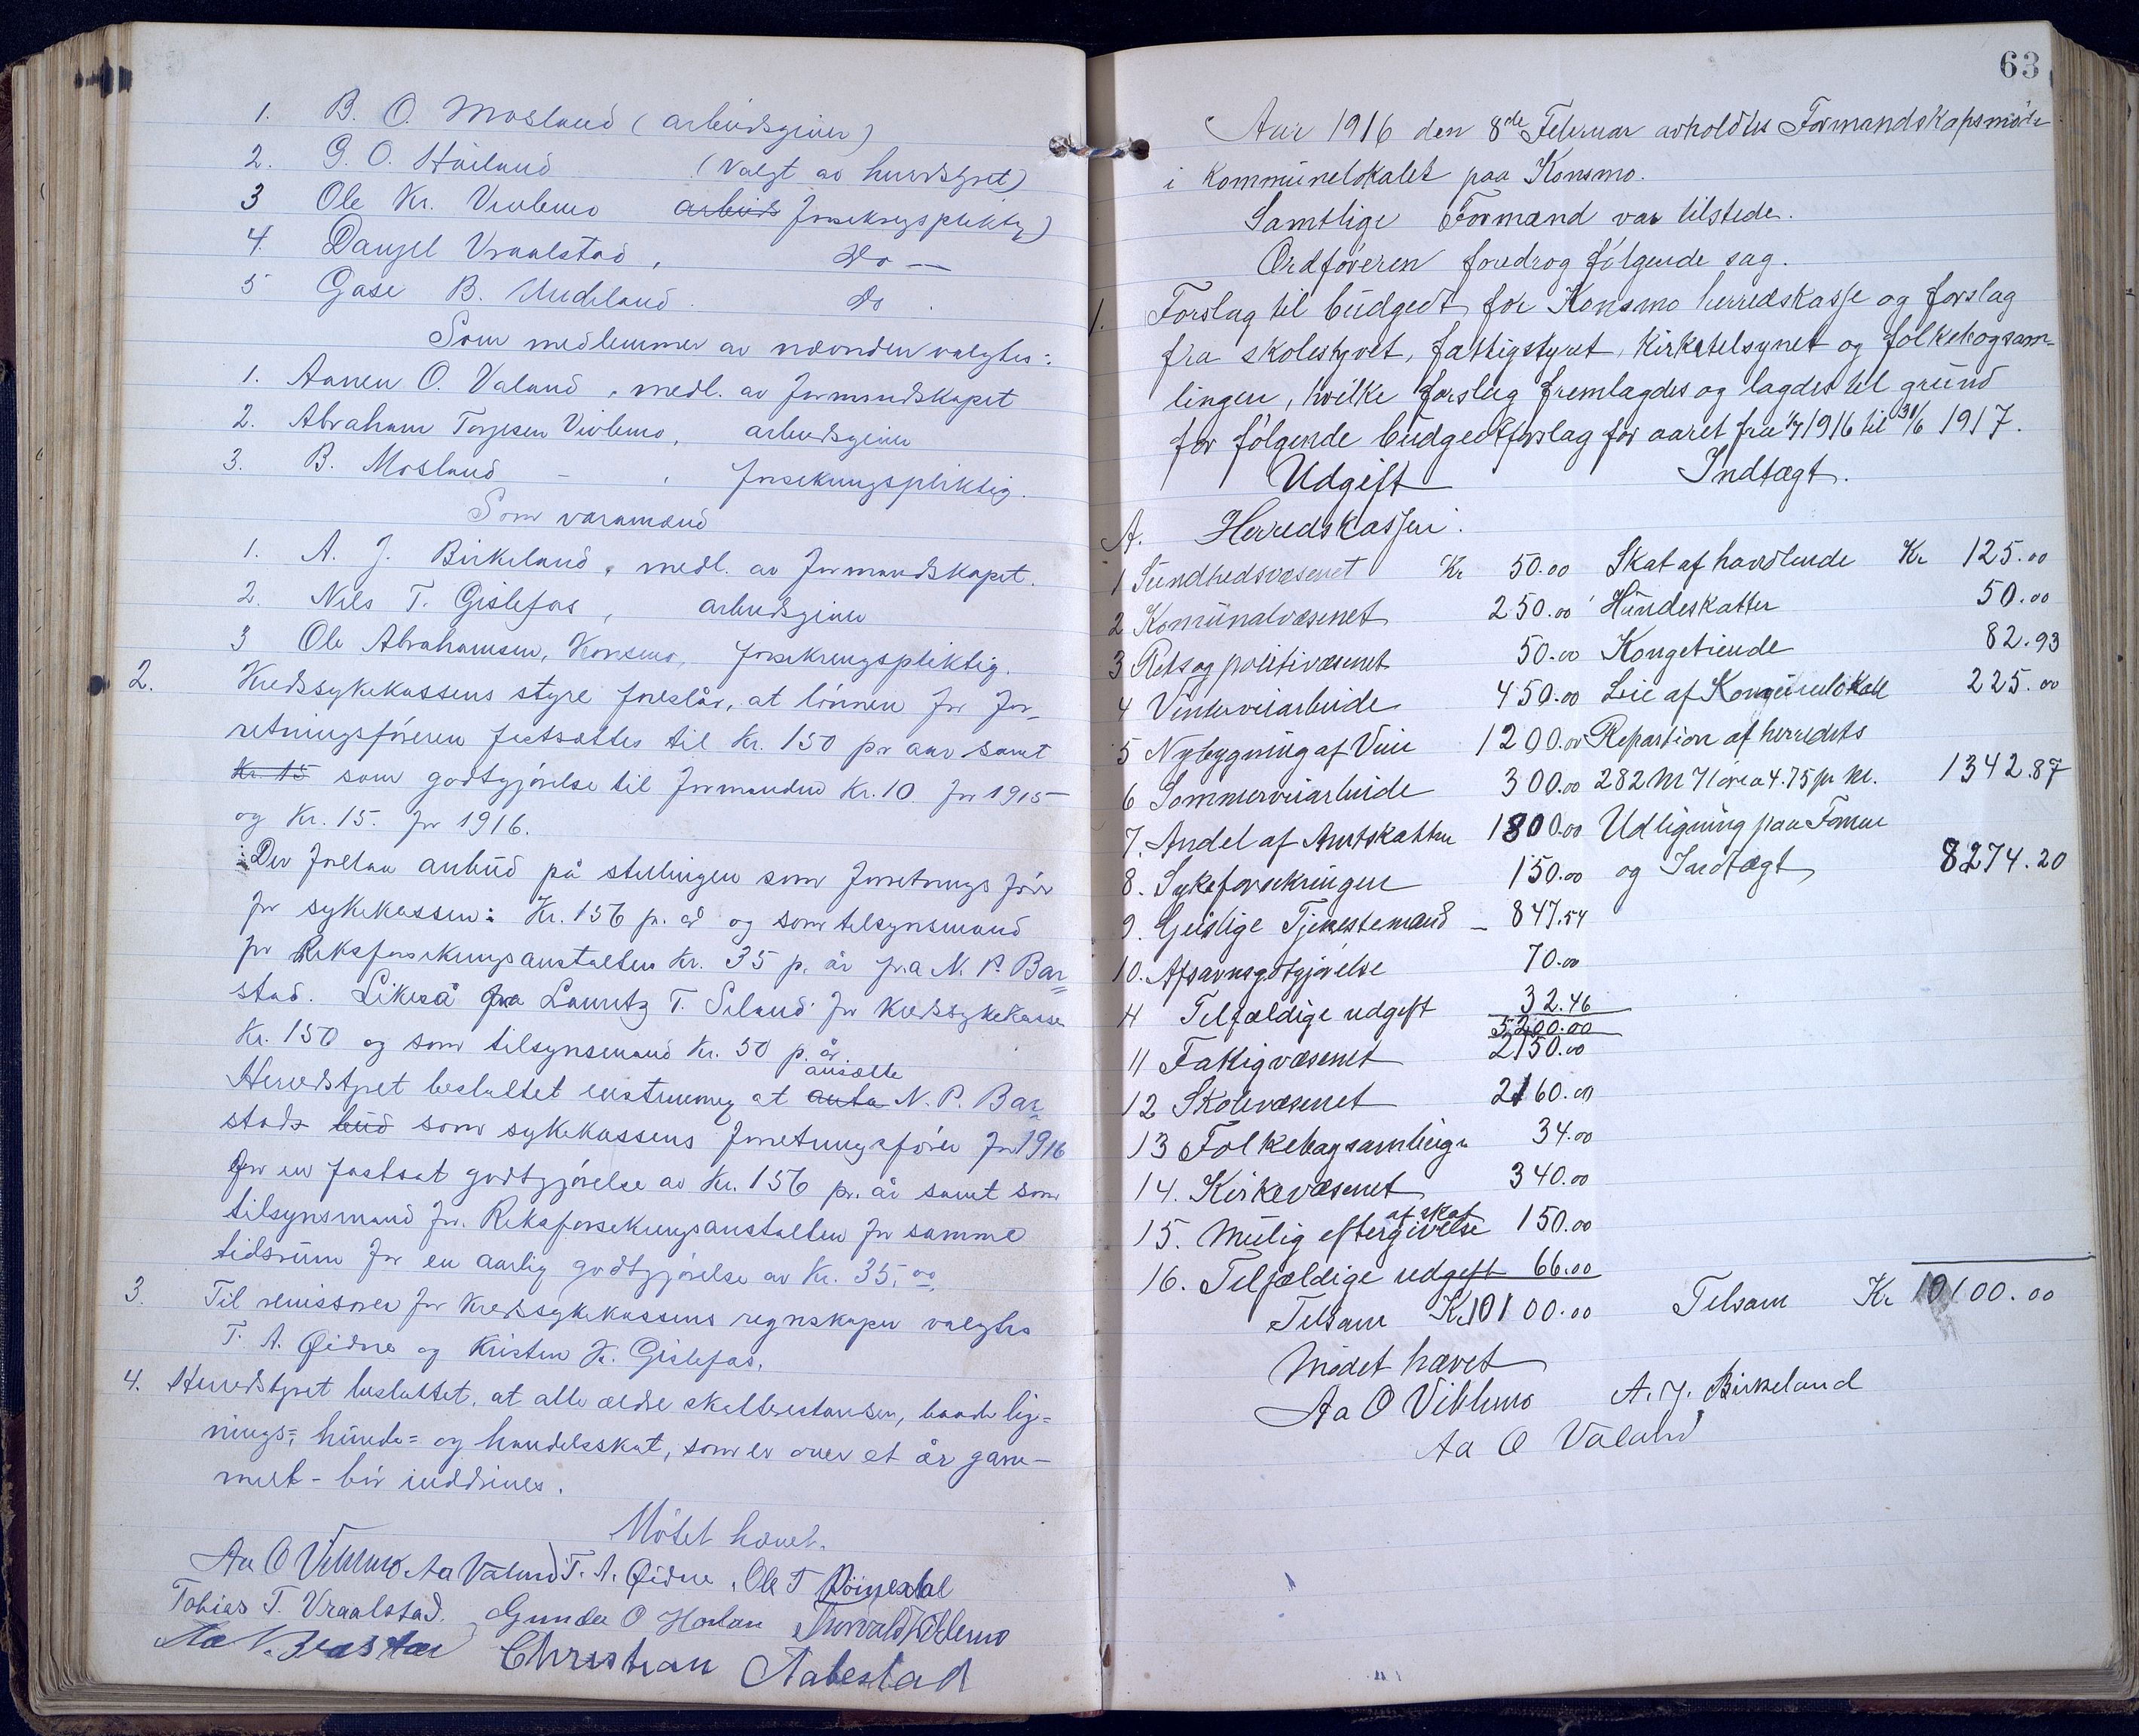 1. B. O. Mosland (arbeidsgiver)
2. G. O. Håland (valgt av herredstyret)
3 Ole Kr. Viblemo arbeids forsikringspliktig)
4. Daniel Vraalstad, Do —
5 Gase B. Udeland. Do.
Som medlemmer av nævnden valgtes:
1. Aanen O. Valand, medl. av formandskapet
2. Abraham Torjesen Viblemo, arbeidsgiver
3. B. Mosland - , forsikringspliktig.
Som varamænd
1. A. J. Birkeland, medl. av formandskapet.
2. Nils T. Gislefos, arbeidsgiver
3 Ole Abrahamsen, Konsmo, forsikringspliktig.
2. Kredssykekassens styre foreslår, at lönnen for for-
retningsföreren fastsættes til Kr. 150 pr aar samt
Kr. 15 som godtgjörelse til formanden Kr. 10 for 1915
og Kr. 15. for 1916.
Der forelaa anbud på stillingen som forretningsförer
for sykekassen: Kr. 156 p. å og som tilsynsmand
for Riksforsikringsanstalten Kr. 35 p. år fra N. P. Bar-
stad. Likeså fra Lauritz T. Seland for kredssykekassen
Kr. 150 og som tilsynsmand Kr. 50 p. år.
Herredstyret besluttet enstemmig at anta ansætte N. P. Bar-
stads bud som sykekassens forretningsförer for 1916
for en fastsat godtgjörelse av Kr. 156 pr. år samt som
tilsynsmand for Riksforsikringsanstalten for samme
tidsrum for en aarlig godtgjörelse av Kr. 35,00.
3. Til revisorer for kredssykekassens regnskaper valgtes
T. A. Øidne og Kristen K. Gislefos.
4. Herredstyret besluttet, at alle ældre skatterestanser, baade lig=
nings=, hunde= og handelsskat, som er over et år gam-
melt - bör inddrives.
Mötet hævet.
Aa O Viblemo Aa Valand T. A. Øidne, Ole T Röinesdal
Tobias T. Vraalstad. Gunder O Haaland Thorvald Viblemo
Christian Aabestad
63
Aar 1916 den 8de Februar avholdtes Formandskapsmöde
i Kommunelokalet paa Konsmo.
Samtlige Formænd var tilstede.
Ordföreren foredrog fölgende sag.
1. Forslag til budgedt for Konsmo herredskasse og forslag
fra skolestyret, fattigstyret, kirketilsynet og folkebogsam=
lingen, hvilke forslag fremlagdes og lagdes til grund
for fölgende budgedtforslag for aaret fra 1/7 1916 til 30/6 1917.
Udgift Indtægt.
A. Herredskassen.
1 Sundhedsvæsenet Kr 50.00 Skat af handlende Kr 125.00
2 Komunalvæsenet 250.00 Hundeskatten 50.00
3 Rets og politivæsenet 50.00 Kongetiende 82.93
4 Vinterveiarbeide 450.00 Leie af Komunelokale 225.00
5 Nybygning af Veie 1200.00 Repartion af herredets
6 Sommerveiarbeide 300.00 282 M 71 öre a 4.75 pr M. 1342.87
7. Andel af Amtskatten 1800.00 Udligning paa Formue
8. Sykeforsikringen 150.00 og Indtægt 8274.20
9. Geislige Tjenestemænd - 847.54
10. Afsavnsgodtgjörelse 70.00
11 Tilfældige udgift 32.46
5200.00
11 Fattigvæsenet 2150.00
12 Skolevæsenet 2160.00
13 Folkebogsamlingen 34.00
14. Kirkevæsenet 340.00
15. Mulig eftergivelse af skat 150.00
16. Tilfældige udgift 66.00
Tilsam Kr 10100.00 Tilsam Kr 10100.00
Mödet hævet
Aa O Viblemo A. J. Birkeland
Aa O Valand